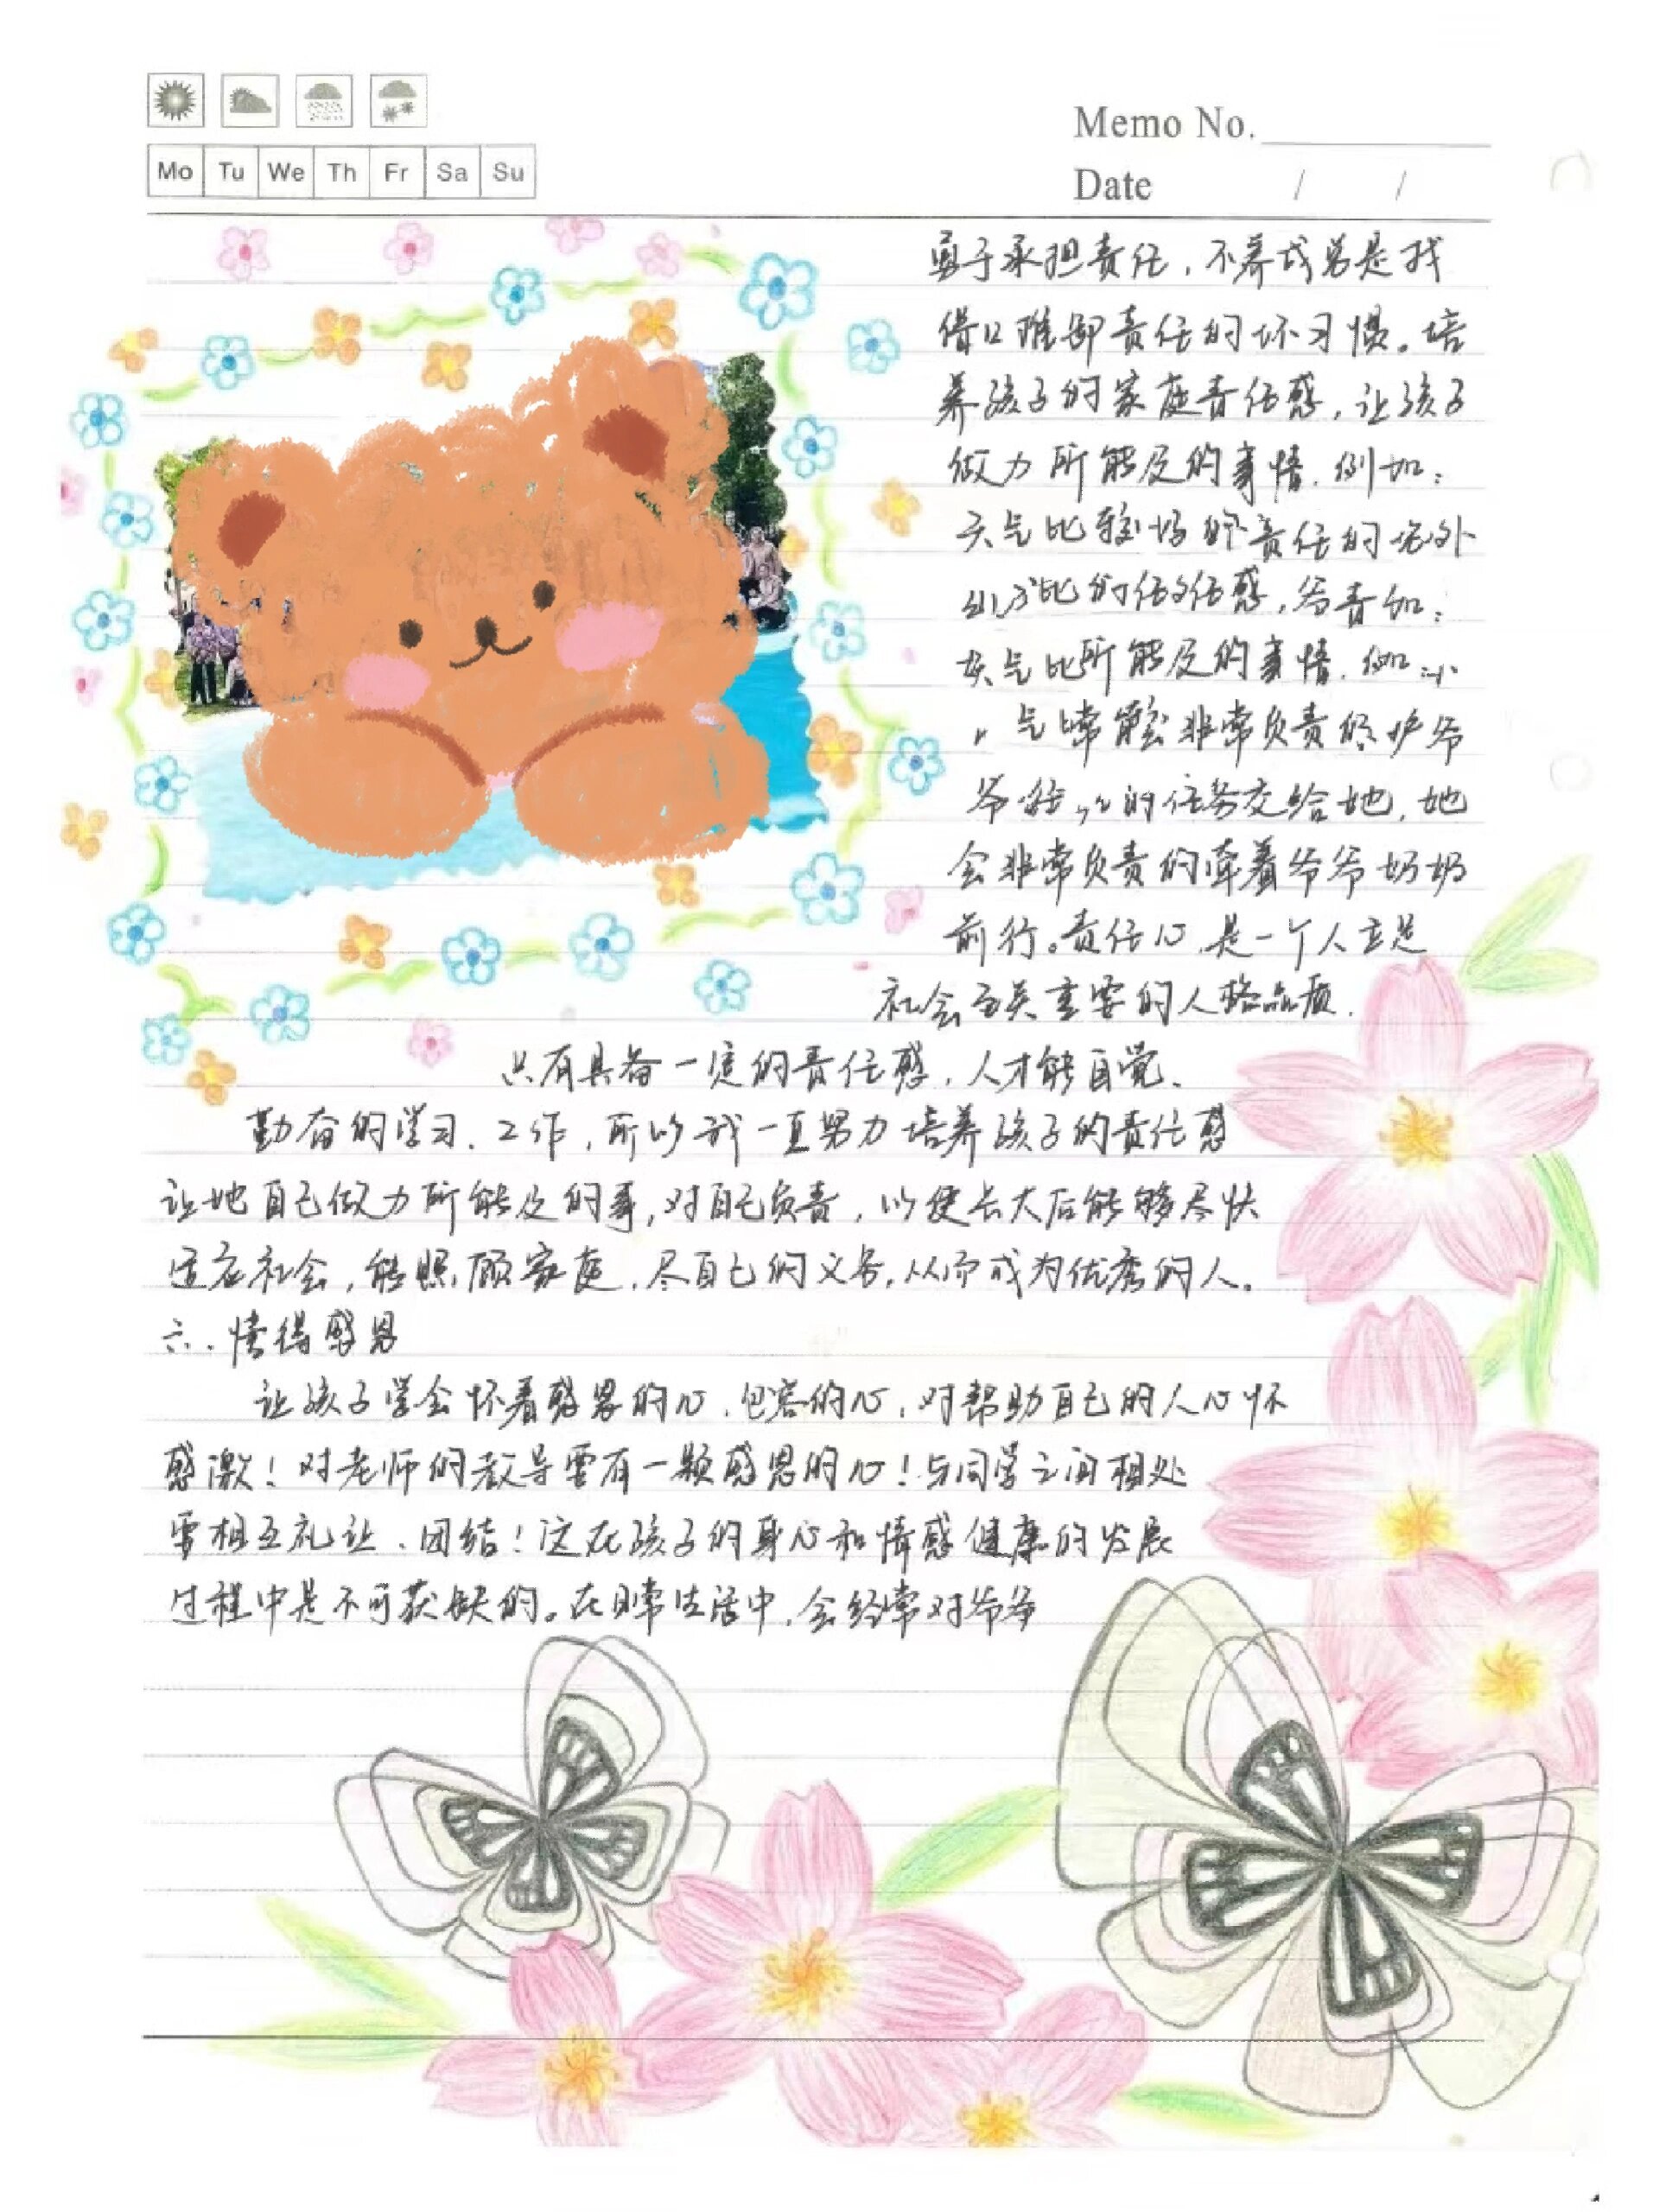 Mo Tu We Th Fr Sa Su
Memo No.
Date / /
勇于承担责任，不养成总是找
借口推卸责任的坏习惯。培
养孩子的家庭责任感，让孩子
做力所能及的事情.例如：
天气比较 责任的 外
比 任 任感，
天气比所能及的事情.例如
气 常 非常负责 爷
爷 的任务交给她，她
会非常负责的牵着爷爷奶奶
前行。责任心，是一个人立足
社会至关重要的人格品质.
只有具备一定的责任感，人才能自觉、
勤奋的学习、工作，所以我一直努力培养孩子的责任感
让她自己做力所能及的事，对自己负责，以便长大后能够尽快
适应社会，能照顾家庭，尽自己的义务，从而成为优秀的人。
六、懂得感恩
让孩子学会怀着感恩的心、包容的心，对帮助自己的人心怀
感激！对老师的教导要有一颗感恩的心！与同学之间相处
要相互礼让、团结！这在孩子的身心和情感健康的发展
过程中是不可获缺的。在日常生活中，会经常对爷爷